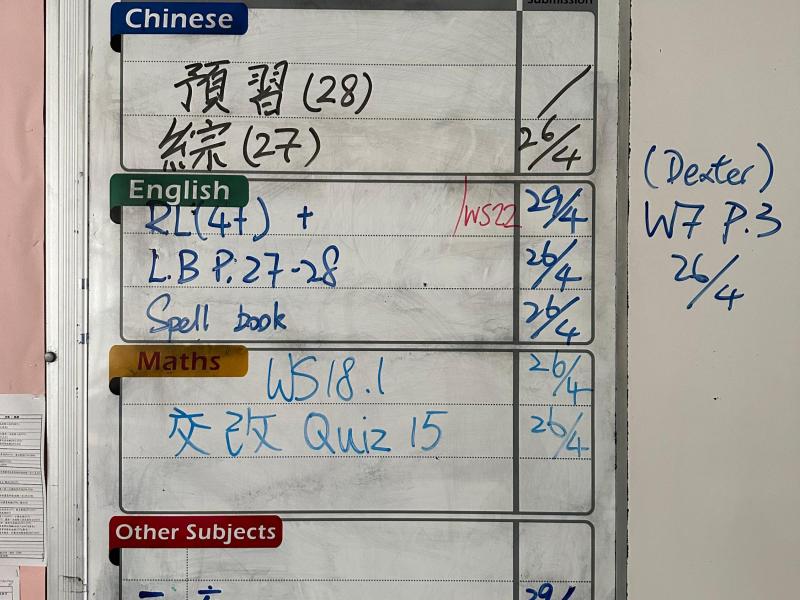 Submission
Chinese
預習(28) /
綜(27) 26/4
English
RL(4+) + /WS22 29/4
L.B P.27-28 26/4
Spell book 26/4
Maths
WS18.1 26/4
交改 Quiz 15 26/4
Other Subjects
29/
(Dexter)
W7 P.3
26/4